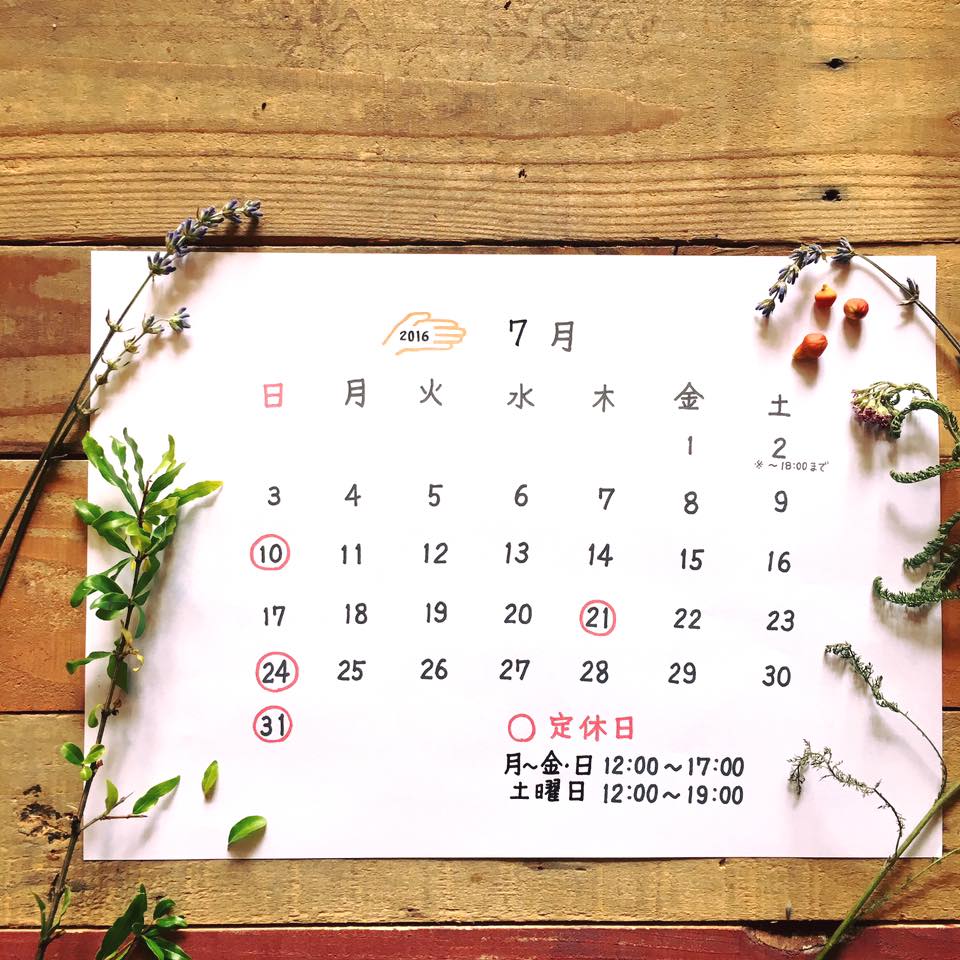 2016 7月
日 月 火 水 木 金 土
1 2
※~18:00まで
3 4 5 6 7 8 9
10 11 12 13 14 15 16
17 18 19 20 21 22 23
24 25 26 27 28 29 30
31
○定休日
月~金・日 12:00~17:00
土曜日 12:00~19:00